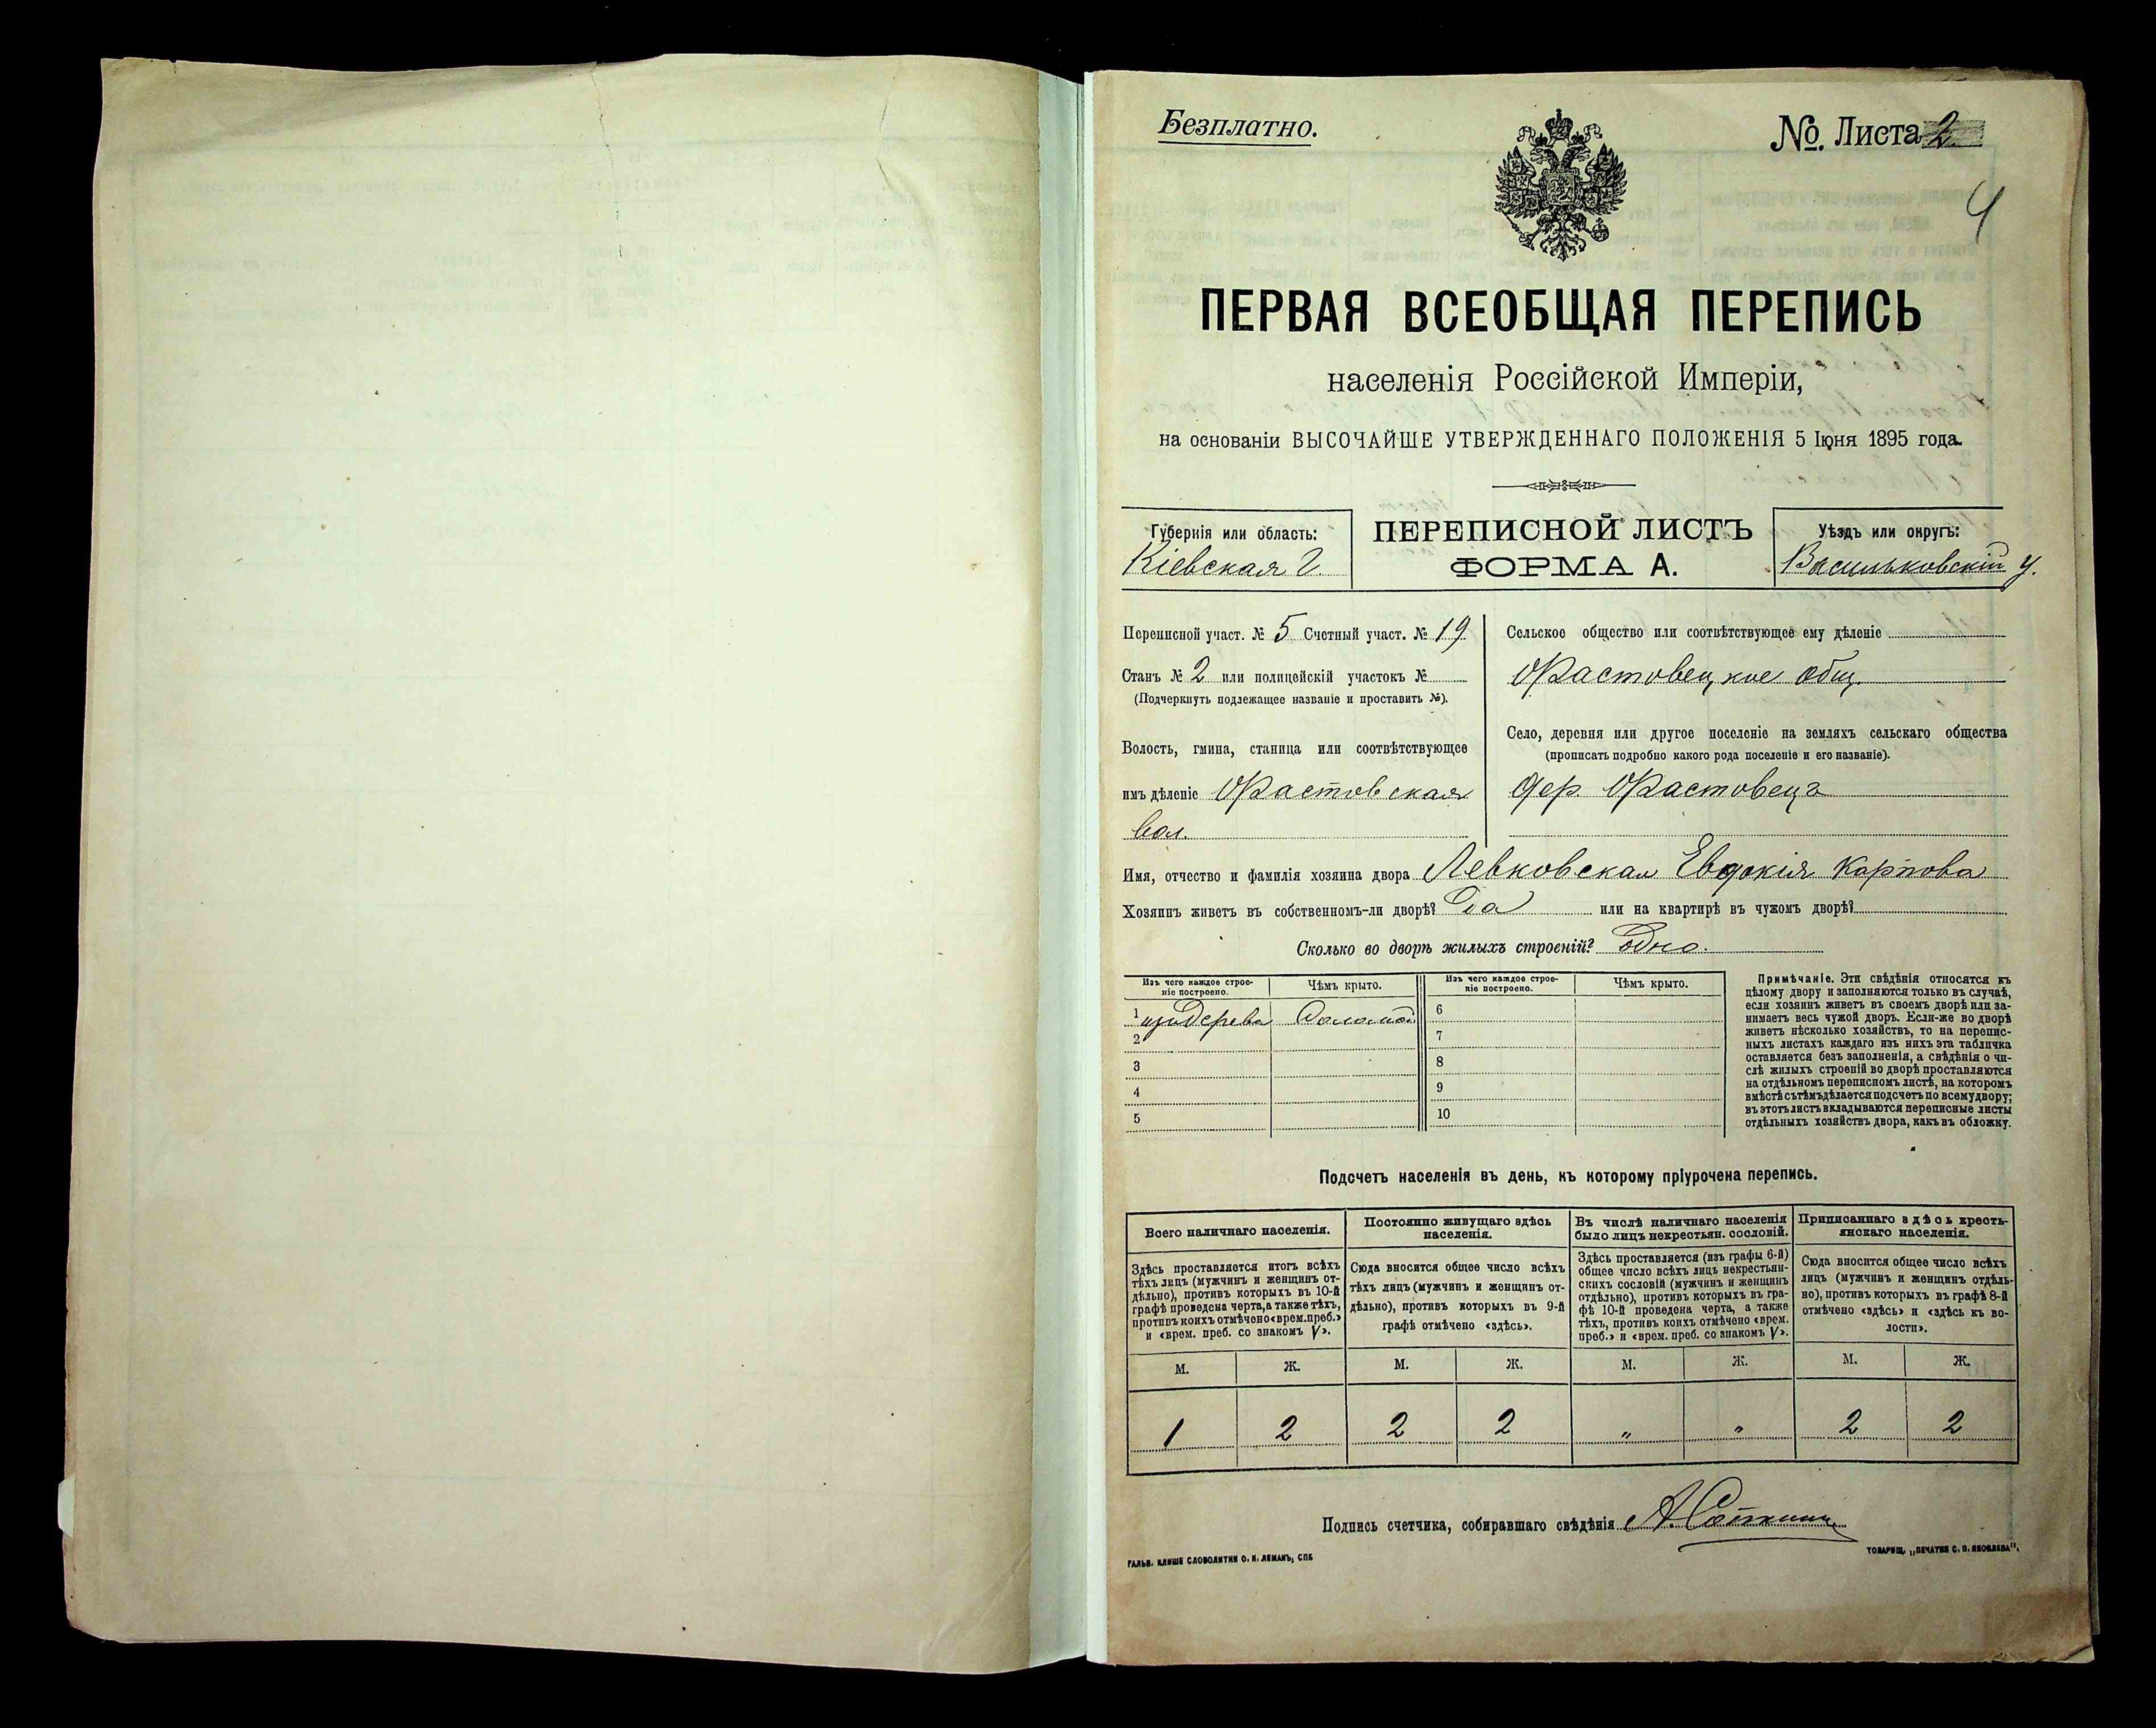 Безплатно.
№. Листа 2
4
ПЕРВАЯ ВСЕОБЩАЯ ПЕРЕПИСЬ
населенія Россійской Имперіи,
на основаніи ВЫСОЧАЙШЕ УТВЕРЖДЕННАГО ПОЛОЖЕНІЯ 5 Іюня 1895 года.
Губернія или область:
Кіевская г.
ПЕРЕПИСНОЙ ЛИСТЪ
ФОРМА А.
Уѣздъ или округъ:
Васильковскій у.
Переписной участ. № 5 Счетный участ. № 19
Станъ № 2 или полицейскій участокъ №
(Подчеркнуть подлежащее названіе и проставить №).
Волость, гмина, станица или соотвѣтствующее
имъ дѣленіе Фастовская
вол.
Сельское общество или соотвѣтствующее ему дѣленіе
Фастовецкое общ.
Село, деревня или другое поселеніе на земляхъ сельскаго общества
(прописать подробно какого рода поселеніе и его названіе).
дер. Фастовецъ
Имя, отчество и фамилія хозяина двора Левковская Евдокія Карпова
Хозяинъ живетъ въ собственномъ-ли дворѣ? Да или на квартирѣ въ чужомъ дворѣ?
Сколько во дворѣ жилыхъ строеній? Одно.
Изъ чего каждое строе-
ніе построено.
Чѣмъ крыто.
Изъ чего каждое строе-
ніе построено.
Чѣмъ крыто.
1 изъ дерева Соломой
2
3
4
5
6
7
8
9
10
Примѣчаніе. Эти свѣдѣнія относятся къ
цѣлому двору и заполняются только въ случаѣ,
если хозяинъ живетъ въ своемъ дворѣ или за-
нимаетъ весь чужой дворъ. Если-же во дворѣ
живетъ нѣсколько хозяйствъ, то на перепис-
ныхъ листахъ каждаго изъ нихъ эта табличка
оставляется безъ заполненія, а свѣдѣнія о чи-
слѣ жилыхъ строеній во дворѣ проставляются
на отдѣльномъ переписномъ листѣ, на которомъ
вмѣстѣ съ тѣмъ дѣлается подсчетъ по всему двору;
въ этотъ листъ вкладываются переписные листы
отдѣльныхъ хозяйствъ двора, какъ въ обложку.
Подсчетъ населенія въ день, къ которому пріурочена перепись.
Всего наличнаго населенія.
Здѣсь проставляется итогъ всѣхъ
тѣхъ лицъ (мужчинъ и женщинъ от-
дѣльно), противъ которыхъ въ 10-й
графѣ проведена черта, а также тѣхъ,
противъ коихъ отмѣчено «врем. преб.»
и «врем. преб. со знакомъ V».
Постоянно живущаго здѣсь
населенія.
Сюда вносится общее число всѣхъ
тѣхъ лицъ (мужчинъ и женщинъ от-
дѣльно), противъ которыхъ въ 9-й
графѣ отмѣчено «здѣсь».
Въ числѣ наличнаго населенія
было лицъ некрестьян. сословій.
Здѣсь проставляется (изъ графы 6-й)
общее число всѣхъ лицъ некрестьян-
скихъ сословій (мужчинъ и женщинъ
отдѣльно), противъ которыхъ въ гра-
фѣ 10-й проведена черта, а также
тѣхъ, противъ коихъ отмѣчено «врем.
преб.» и «врем. преб. со знакомъ V».
Приписаннаго здѣсь кресть-
янскаго населенія.
Сюда вносится общее число всѣхъ
лицъ (мужчинъ и женщинъ отдѣль-
но), противъ которыхъ въ графѣ 8-й
отмѣчено «здѣсь» и «здѣсь къ во-
лости».
М. Ж. М. Ж. М. Ж. М. Ж.
1 2 2 2 „ „ 2 2
Подпись счетчика, собиравшаго свѣдѣнія
ГАЛЬВ. КЛИШЕ СЛОВОЛИТНИ О. И. ЛЕМАНЪ, СПБ
ТОВАРИЩ. „ПЕЧАТНИ С. П. ЯКОВЛЕВА".